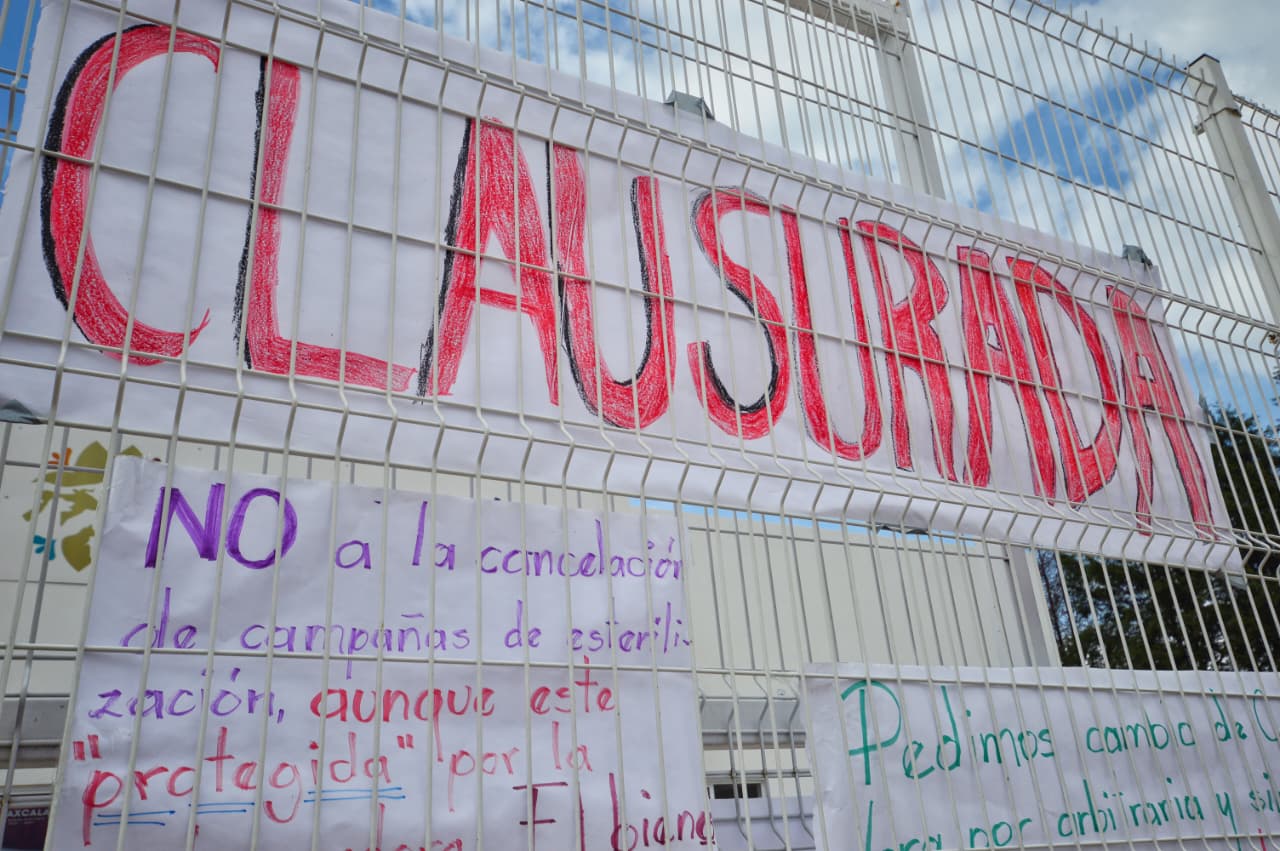 CLAUSURADA
NO a la cancelación
de campañas de esterili-
zación, aunque este
"protegida" por la
El bienes
Pedimos cambio de
por arbitraria y
AXCALA